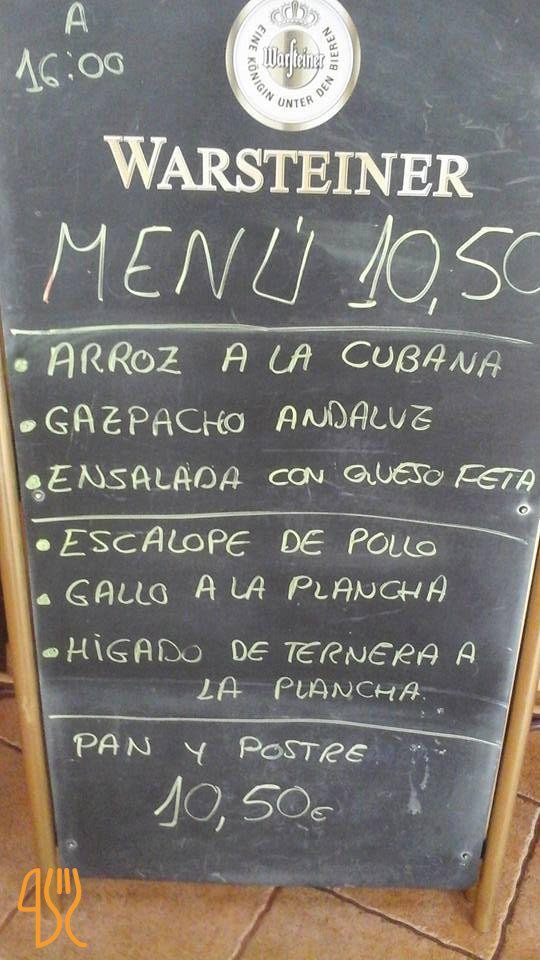 A
16:00
EINE KÖNIGIN UNTER DEN BIEREN
Warsteiner
WARSTEINER
MENÚ 10,50
• ARROZ A LA CUBANA
• GAZPACHO ANDALUZ
• ENSALADA CON QUESO FETA
• ESCALOPE DE POLLO
• GALLO A LA PLANCHA
• HIGADO DE TERNERA A
LA PLANCHA.
PAN Y POSTRE
10,50€